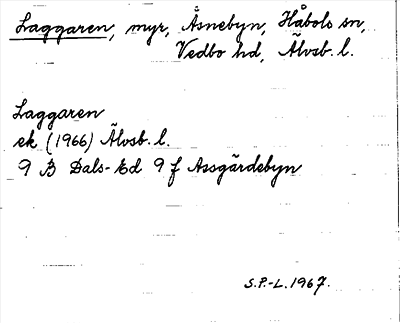 Laggaren, myr, Åsnebyn, Håbols sn,
Vedbo hd, Älvsb. l.
Laggaren
ek (1966) Älvsb. l.
9 B Dals-Ed 9 f Assgärdebyn
S.P.-L. 1967.